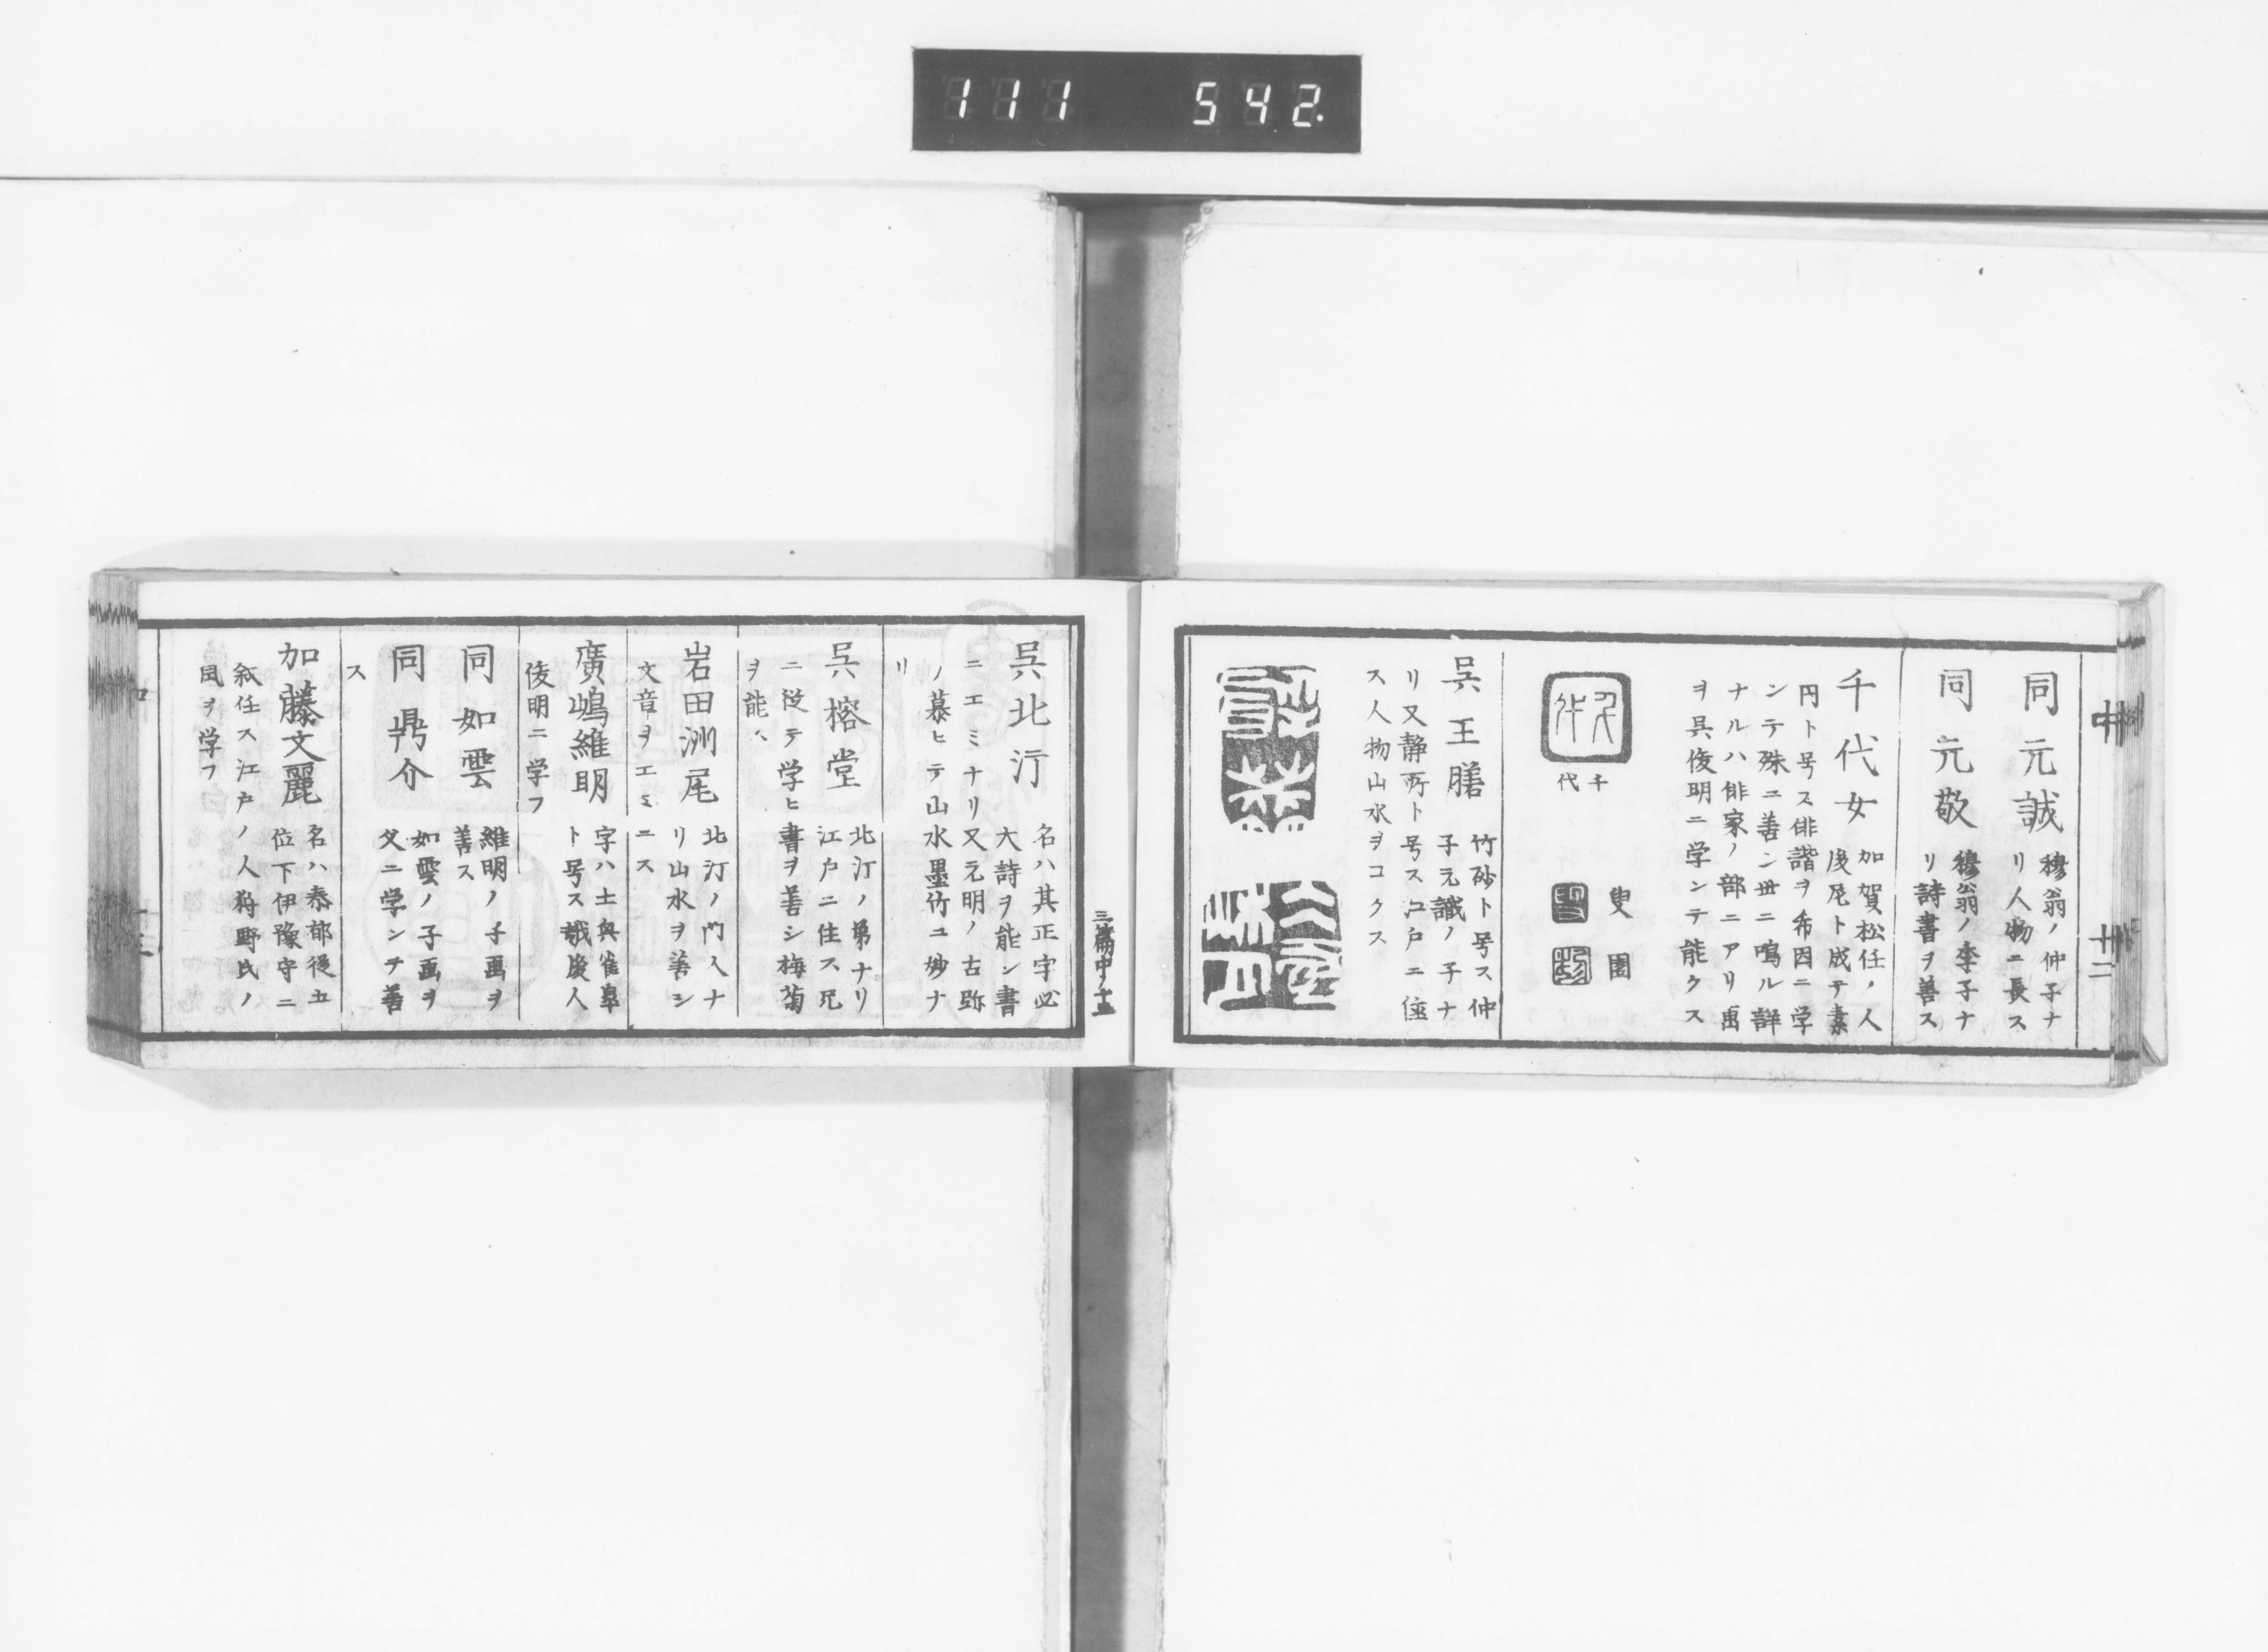 111 542.
中
十二
同元誠
穆翁ノ仲子ナ
リ人物ニ長ス
同元敬
穆翁ノ季子ナ
リ詩書ヲ善ス
千代女
加賀松任ノ人
後尼ト成テ素
円ト号ス俳諧ヲ希因ニ学
ンテ殊ニ善ン世ニ鳴ル詳
ナルハ俳家ノ部ニアリ画
ヲ呉俊明ニ学ンテ能クス
千代
叟園
呉王膳
竹砂ト号ス仲
子元誠ノ子ナ
リ又静所ト号ス江戸ニ住
ス人物山水ヲコクス
三篇中ノ十三
呉北汀
名ハ其正字必
大詩ヲ能ン書
ニエミナリ又元明ノ古跡
ノ慕ヒテ山水墨竹ニ妙ナ
リ
呉榕堂
北汀ノ弟ナリ
江戸ニ住ス兄
ニ従テ学ヒ書ヲ善シ梅菊
ヲ能ス
岩田洲尾
北汀ノ門人ナ
リ山水ヲ善シ
文章ヲエミニス
廣嶋維明
字ハ士與雀皐
ト号ス越後人
俊明ニ学フ
同如雲
維明ノ子画ヲ
善ス
同鼎介
如雲ノ子画ヲ
父ニ学ンテ善
ス
加藤文麗
名ハ泰都後五
位下伊豫守ニ
叙任ス江戸ノ人狩野氏ノ
風ヲ学フ